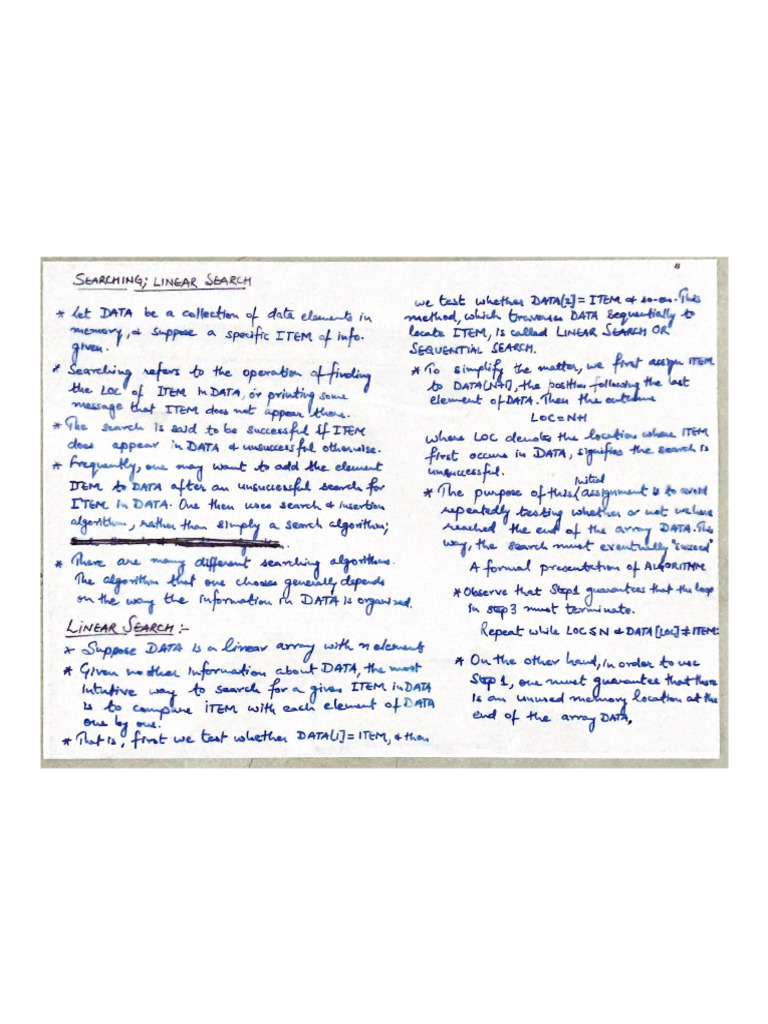 SEARCHING; LINEAR SEARCH
* Let DATA be a collection of data elements in
memory, & suppose a specific ITEM of info.
given.
* Searching refers to the operation of finding
the LOC of ITEM in DATA, or printing some
message that ITEM does not appear there.
* The search is said to be successful if ITEM
does appear in DATA & unsuccessful otherwise.
* Frequently, one may want to add the element
ITEM to DATA after an unsuccessful search for
ITEM in DATA. One then uses search & insertion
algorithm, rather than simply a search algorithm;
* There are many different searching algorithms.
The algorithm that one chooses generally depends
on the way the information in DATA is organized.
LINEAR SEARCH:-
* Suppose DATA is a linear array with n element
* Given no other information about DATA, the most
intutive way to search for a given ITEM in DATA
is to compare ITEM with each element of DATA
one by one.
* That is, first we test whether DATA[1]=ITEM, & then
we test whether DATA[2]=ITEM & so-on. This
method, which traverses DATA sequentially to
locate ITEM, is called LINEAR SEARCH OR
SEQUENTIAL SEARCH.
* To simplify the matter, we first assign ITEM
to DATA[N+1], the position following the last
element of DATA. Then the outcome
LOC=N+1
where LOC denotes the location where ITEM
first occurs in DATA, signifies the search is
unsuccessful.
* The purpose of this initial assignment is to avoid
repeatedly testing whether or not we have
reached the end of the array DATA. This
way, the search must eventually "succeed"
A formal presentation of ALGORITHM
* Observe that Step1 guarantees that the loop
in step 3 must terminate.
Repeat while LOC≤N & DATA[LOC]≠ITEM:
* On the other hand, in order to use
Step 1, one must guarantee that there
is an unused memory location at the
end of the array DATA,